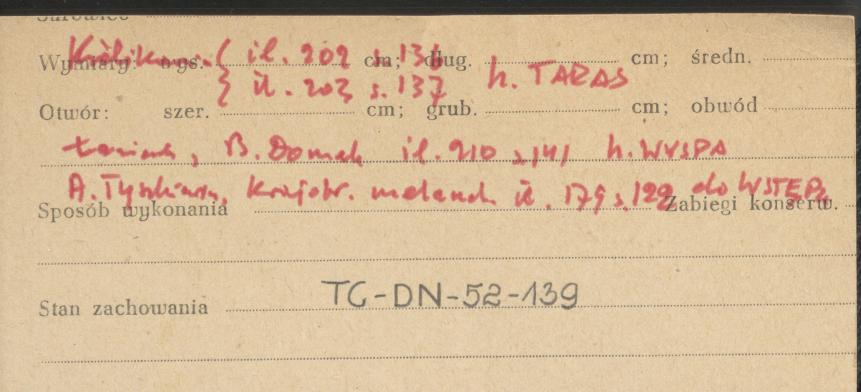 Surowiec
Królikarnia { il. 202 s. 136
Wymiary: wys. cm; dług. cm; średn.
} il. 203 s. 137 h. TARAS
Otwór: szer. cm; grub. cm; obwód
B. Domek il. 210 s. 141 h. WYSPA
A. Krajobr. il. 179 s. 129 do WSTĘPU
Sposób wykonania Zabiegi konserw.
Stan zachowania TC-DN-52-139